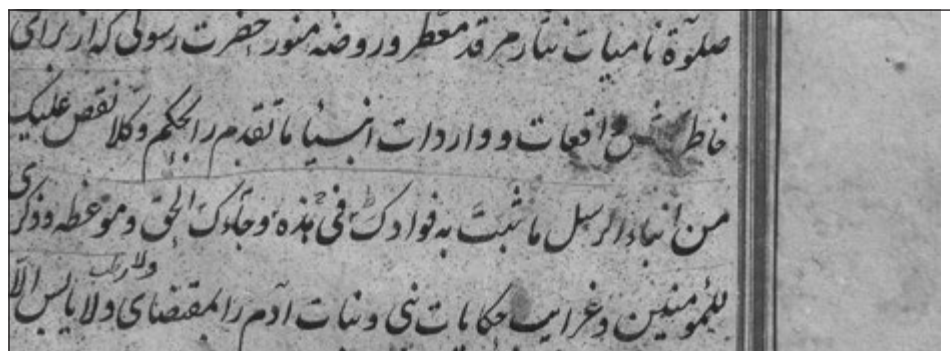 صلوة نامیات نثار مرقد معطر و روضه منور حضرت رسولی که از برای
خاطر واقعات و واردات انبیا ما تقدم را بحکم وکلا نقص علیک
من انباء الرسل ما نثبت به فوادک فی هذه وجاءک الحق وموعظه وذکری
للمومنین و غرایب حکایات بنی و بنات آدم را بمقتضای ولا یابس الا